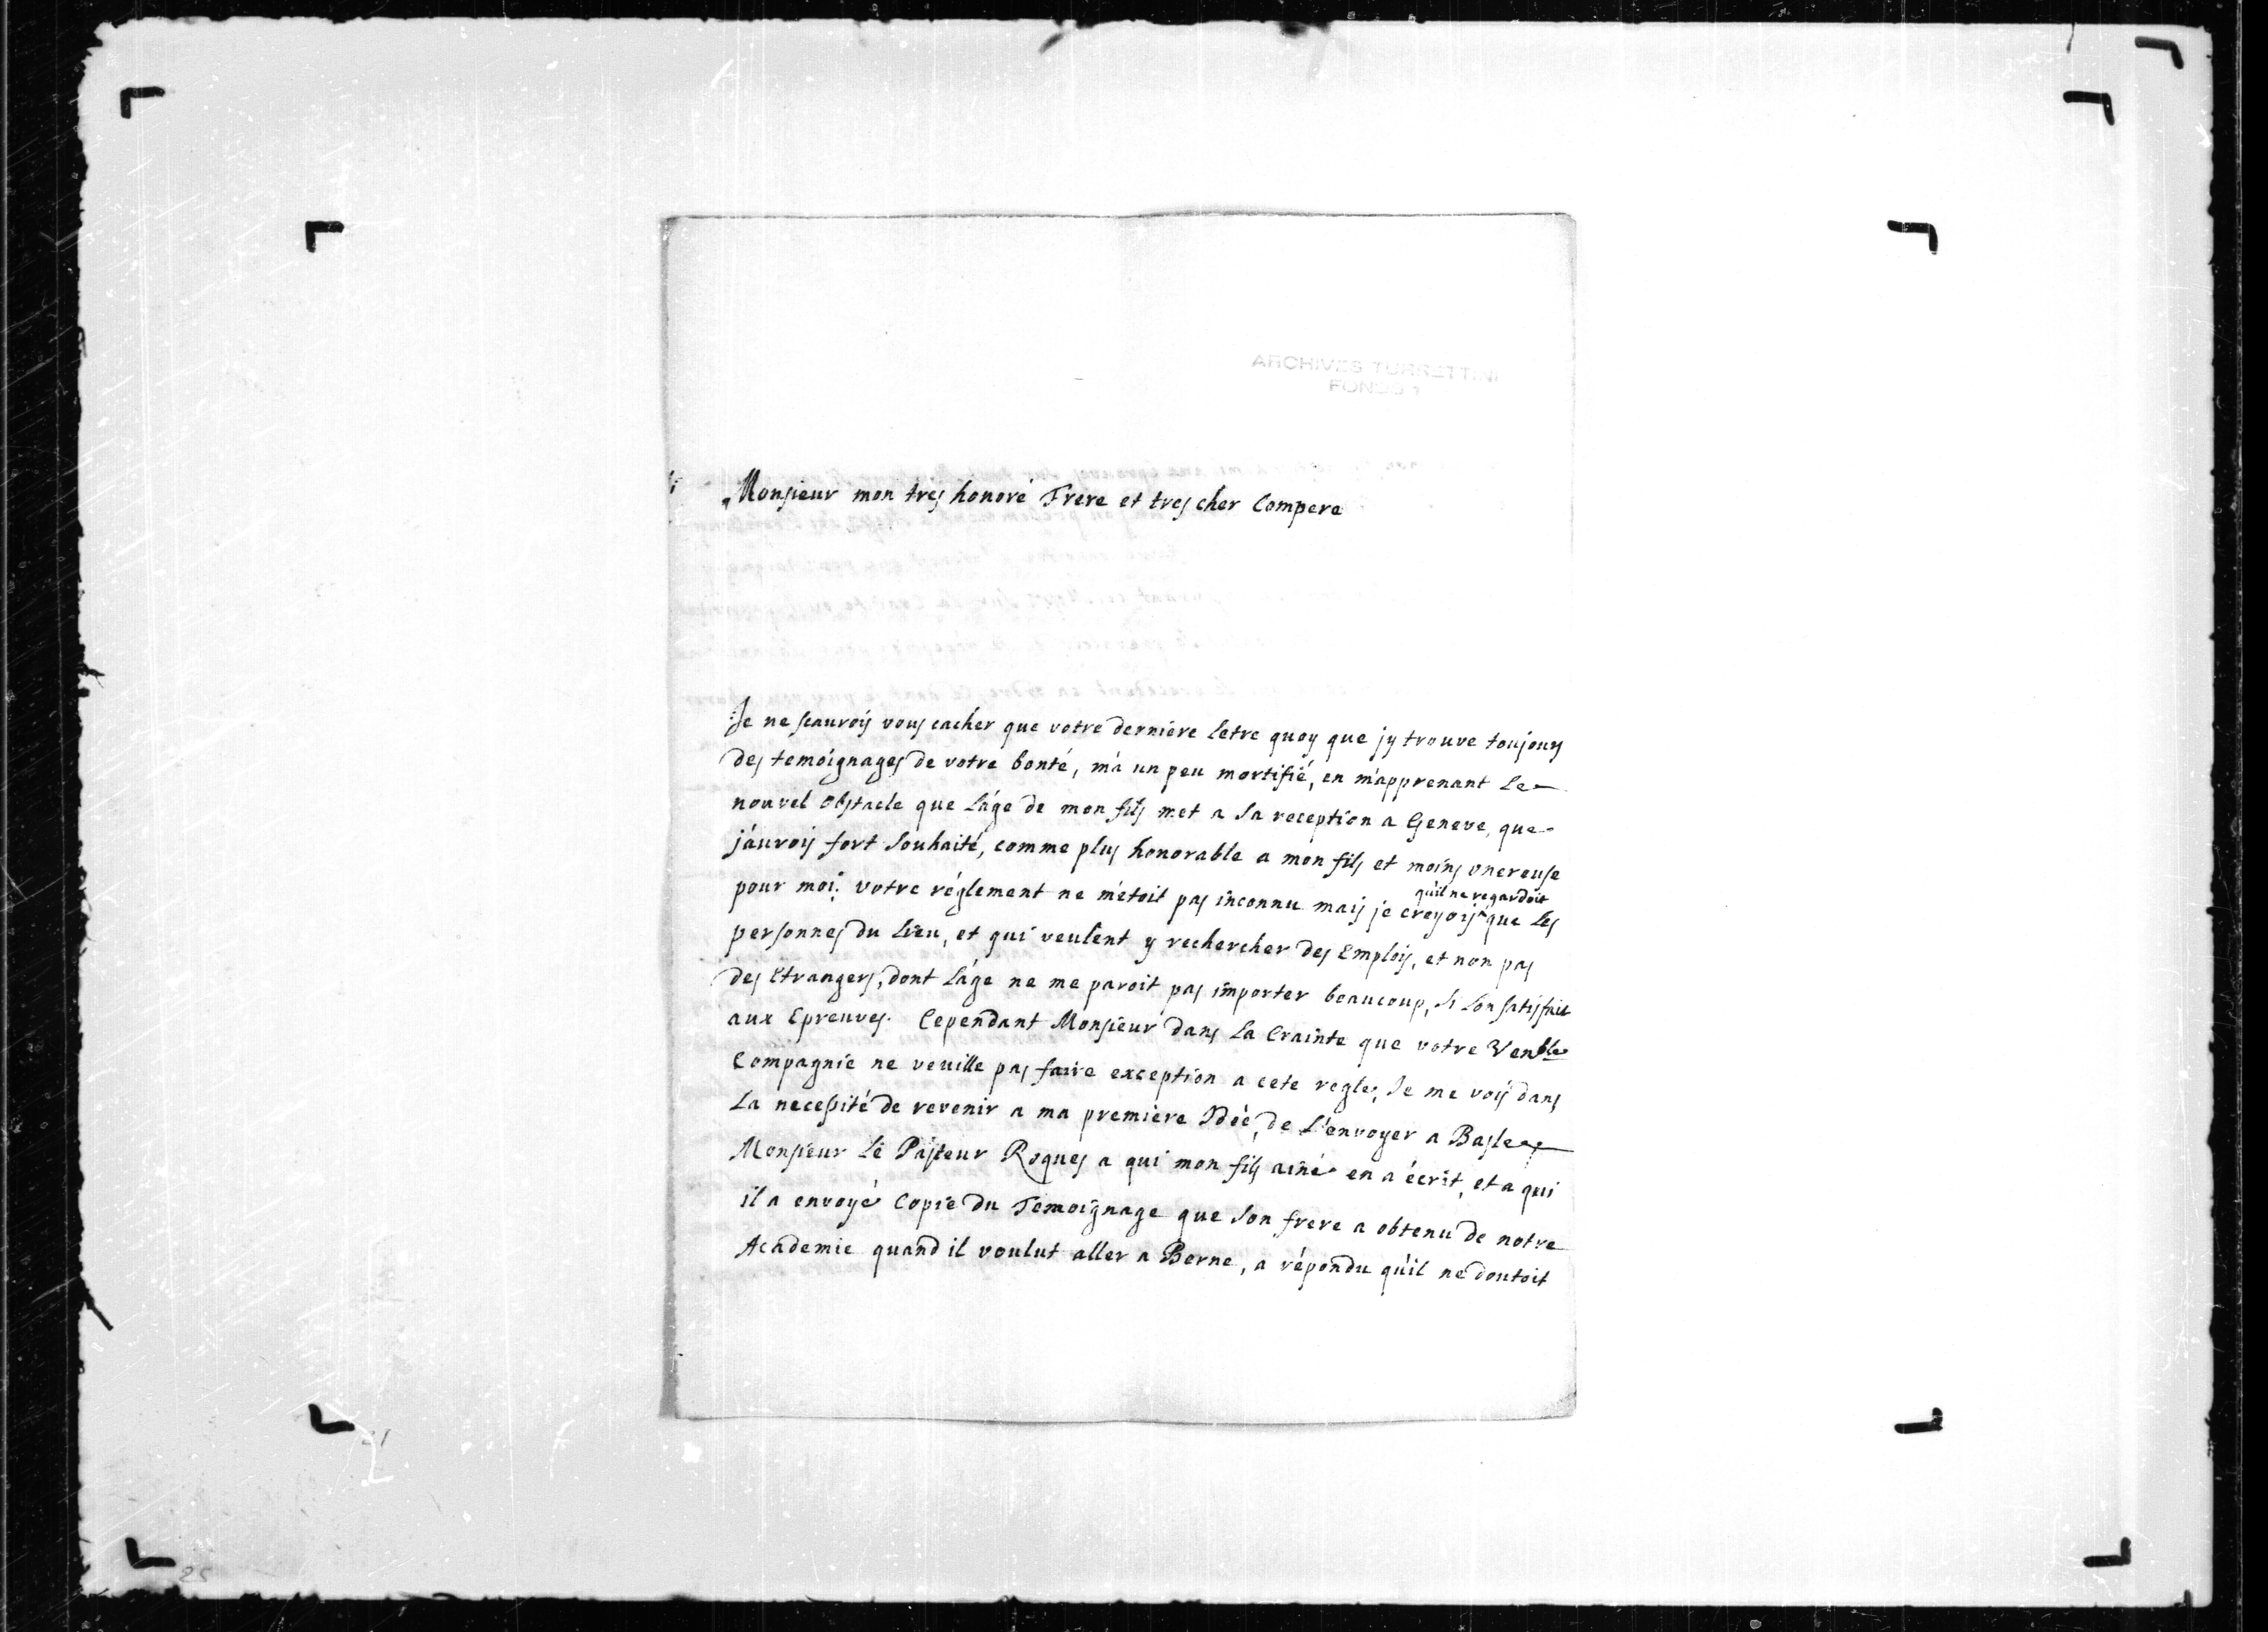 ARCHIVES TURRETTINI
FONDS 1
Monsieur mon tres honoré Frere et tres cher Compere
Je ne scaurois vous cacher que votre derniere letre quoy que jy trouve toujours
des temoignages de votre bonté, m'a un peu mortifié, en m'apprenant le
nouvel obstacle que l'age de mon fils met a sa reception a Geneve, que
j'aurois fort souhaité, comme plus honorable a mon fils et moins onereuse
pour moi. votre réglement ne m'étoit pas inconnu mais je croyois qu'il ne regardoit que les
personnes du lieu, et qui veulent y rechercher des Emplois, et non pas
des Etrangers, dont l'age ne me paroit pas importer beaucoup, si l'on satisfait
aux Epreuves. Cependant Monsieur dans la Crainte que votre Venble
Compagnie ne veuille pas faire exception a cete regle, Je me vois dans
la necessité de revenir a ma premiere Idée, de l'envoyer a Basle
Monsieur le Pasteur Roques a qui mon fils ainé en a écrit, et a qui
il a envoyé Copie du Temoignage que son frere a obtenu de notre
Academie quand il voulut aller a Berne, a répondu qu'il ne doutoit
21
25